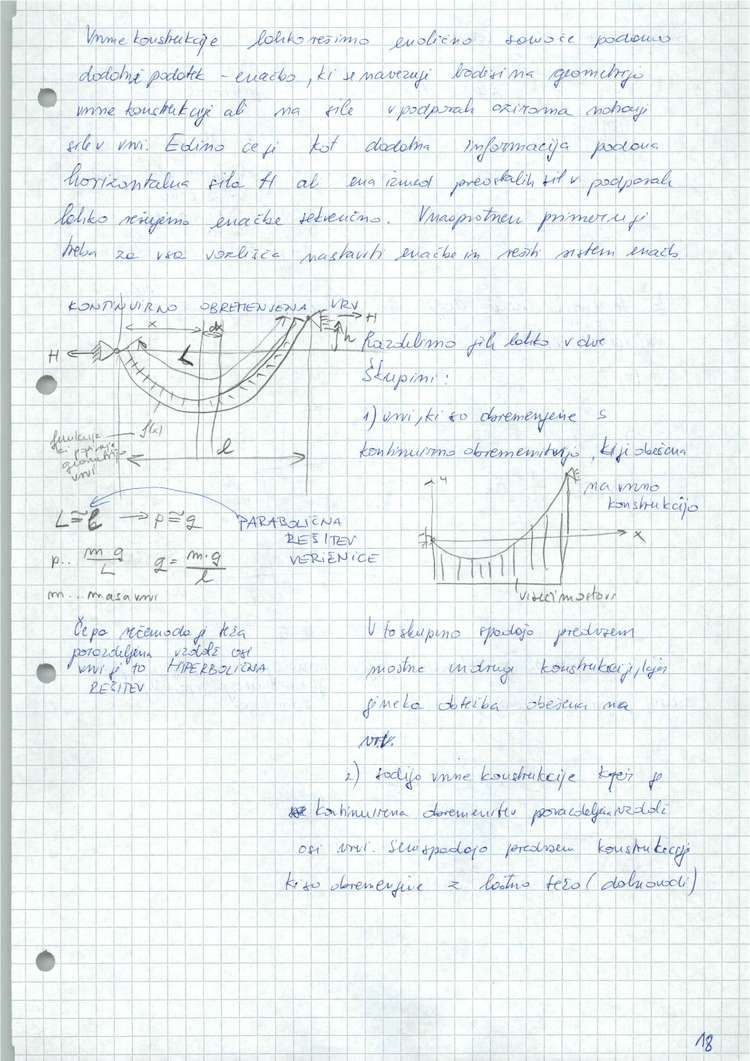 Vrvne konstrukcije lahko rešimo enolično samo če podamo
dodatni podatek - enačbo, ki se navezuji bodisi na geometrijo
vrvne konstrukcije ali na sile v podporah oziroma notranji
sile v vrvi. Edino če ji kot dodatna informacija podana
horizontalna sila H ali ena izmed preostalih sil v podporah
lahko rešujemo enačbe sekvenčno. V nasprotnem primeru ji
treba za vsa vozlišča nastaviti enačbe in rešiti sistem enačb
KONTINUIRNO OBREMENJENA VRV
x dx H
H L h
f(x)
l
funkcija
ki opisuje
geometrijo
vrvi
Razdelimo jih lahko v dve
škupini:
1) vrvi, ki so obremenjene s
kontinuirno obremenitvijo, ki ji obešena
na vrvno
konstrukcijo
y
x
viseči mostovi
L ≅ l → p ≅ q
PARABOLIČNA
REŠITEV
VERIŽNICE
p.. m·g/L q = m·g/l
m... masa vrvi
Če pa rečemo da ji teža
porazdeljena vzdolž osi
vrvi ji to HIPERBOLIČNA
REŠITEV
V to skupino spadajo predvsem
mostne in drugi konstrukciji, kjer
ji neka obtežba obešena na
vrv.
2) sodijo vrvne konstrukcije kjer ji
kontinuirna obremenitev porazdeljena vzdolž
osi vrvi. Sem spadajo predvsem konstrukciji
ki so obremenjene z lastno težo (daljnovodi)
18